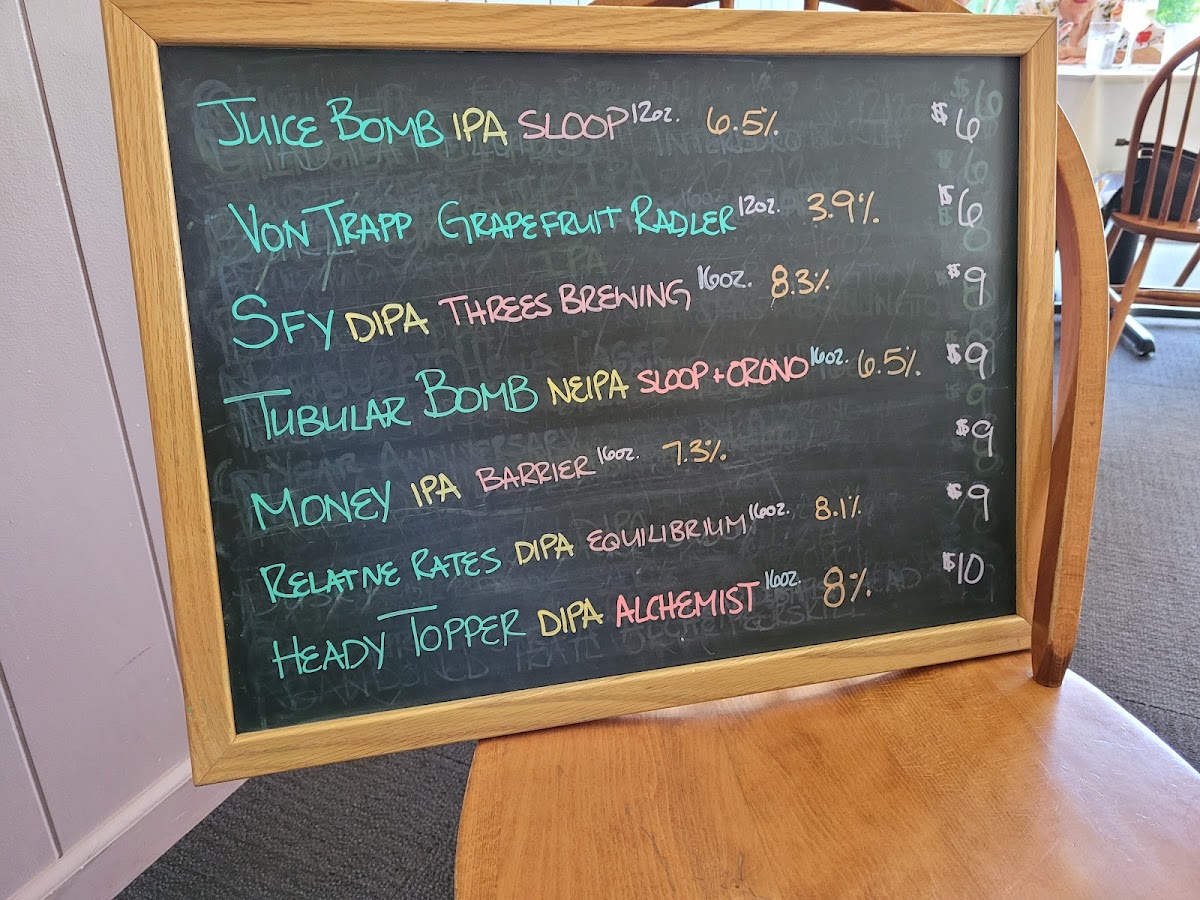 JUICE BOMB IPA SLOOP 12oz. 6.5% $6
VON TRAPP GRAPEFRUIT RADLER 12oz. 3.9% $6
SFY DIPA THREES BREWING 16oz. 8.3% $9
TUBULAR BOMB NEIPA SLOOP + ORONO 16oz. 6.5% $9
MONEY IPA BARRIER 16oz. 7.3% $9
RELATIVE RATES DIPA EQUILIBRIUM 16oz. 8.1% $9
HEADY TOPPER DIPA ALCHEMIST 16oz. 8% $10